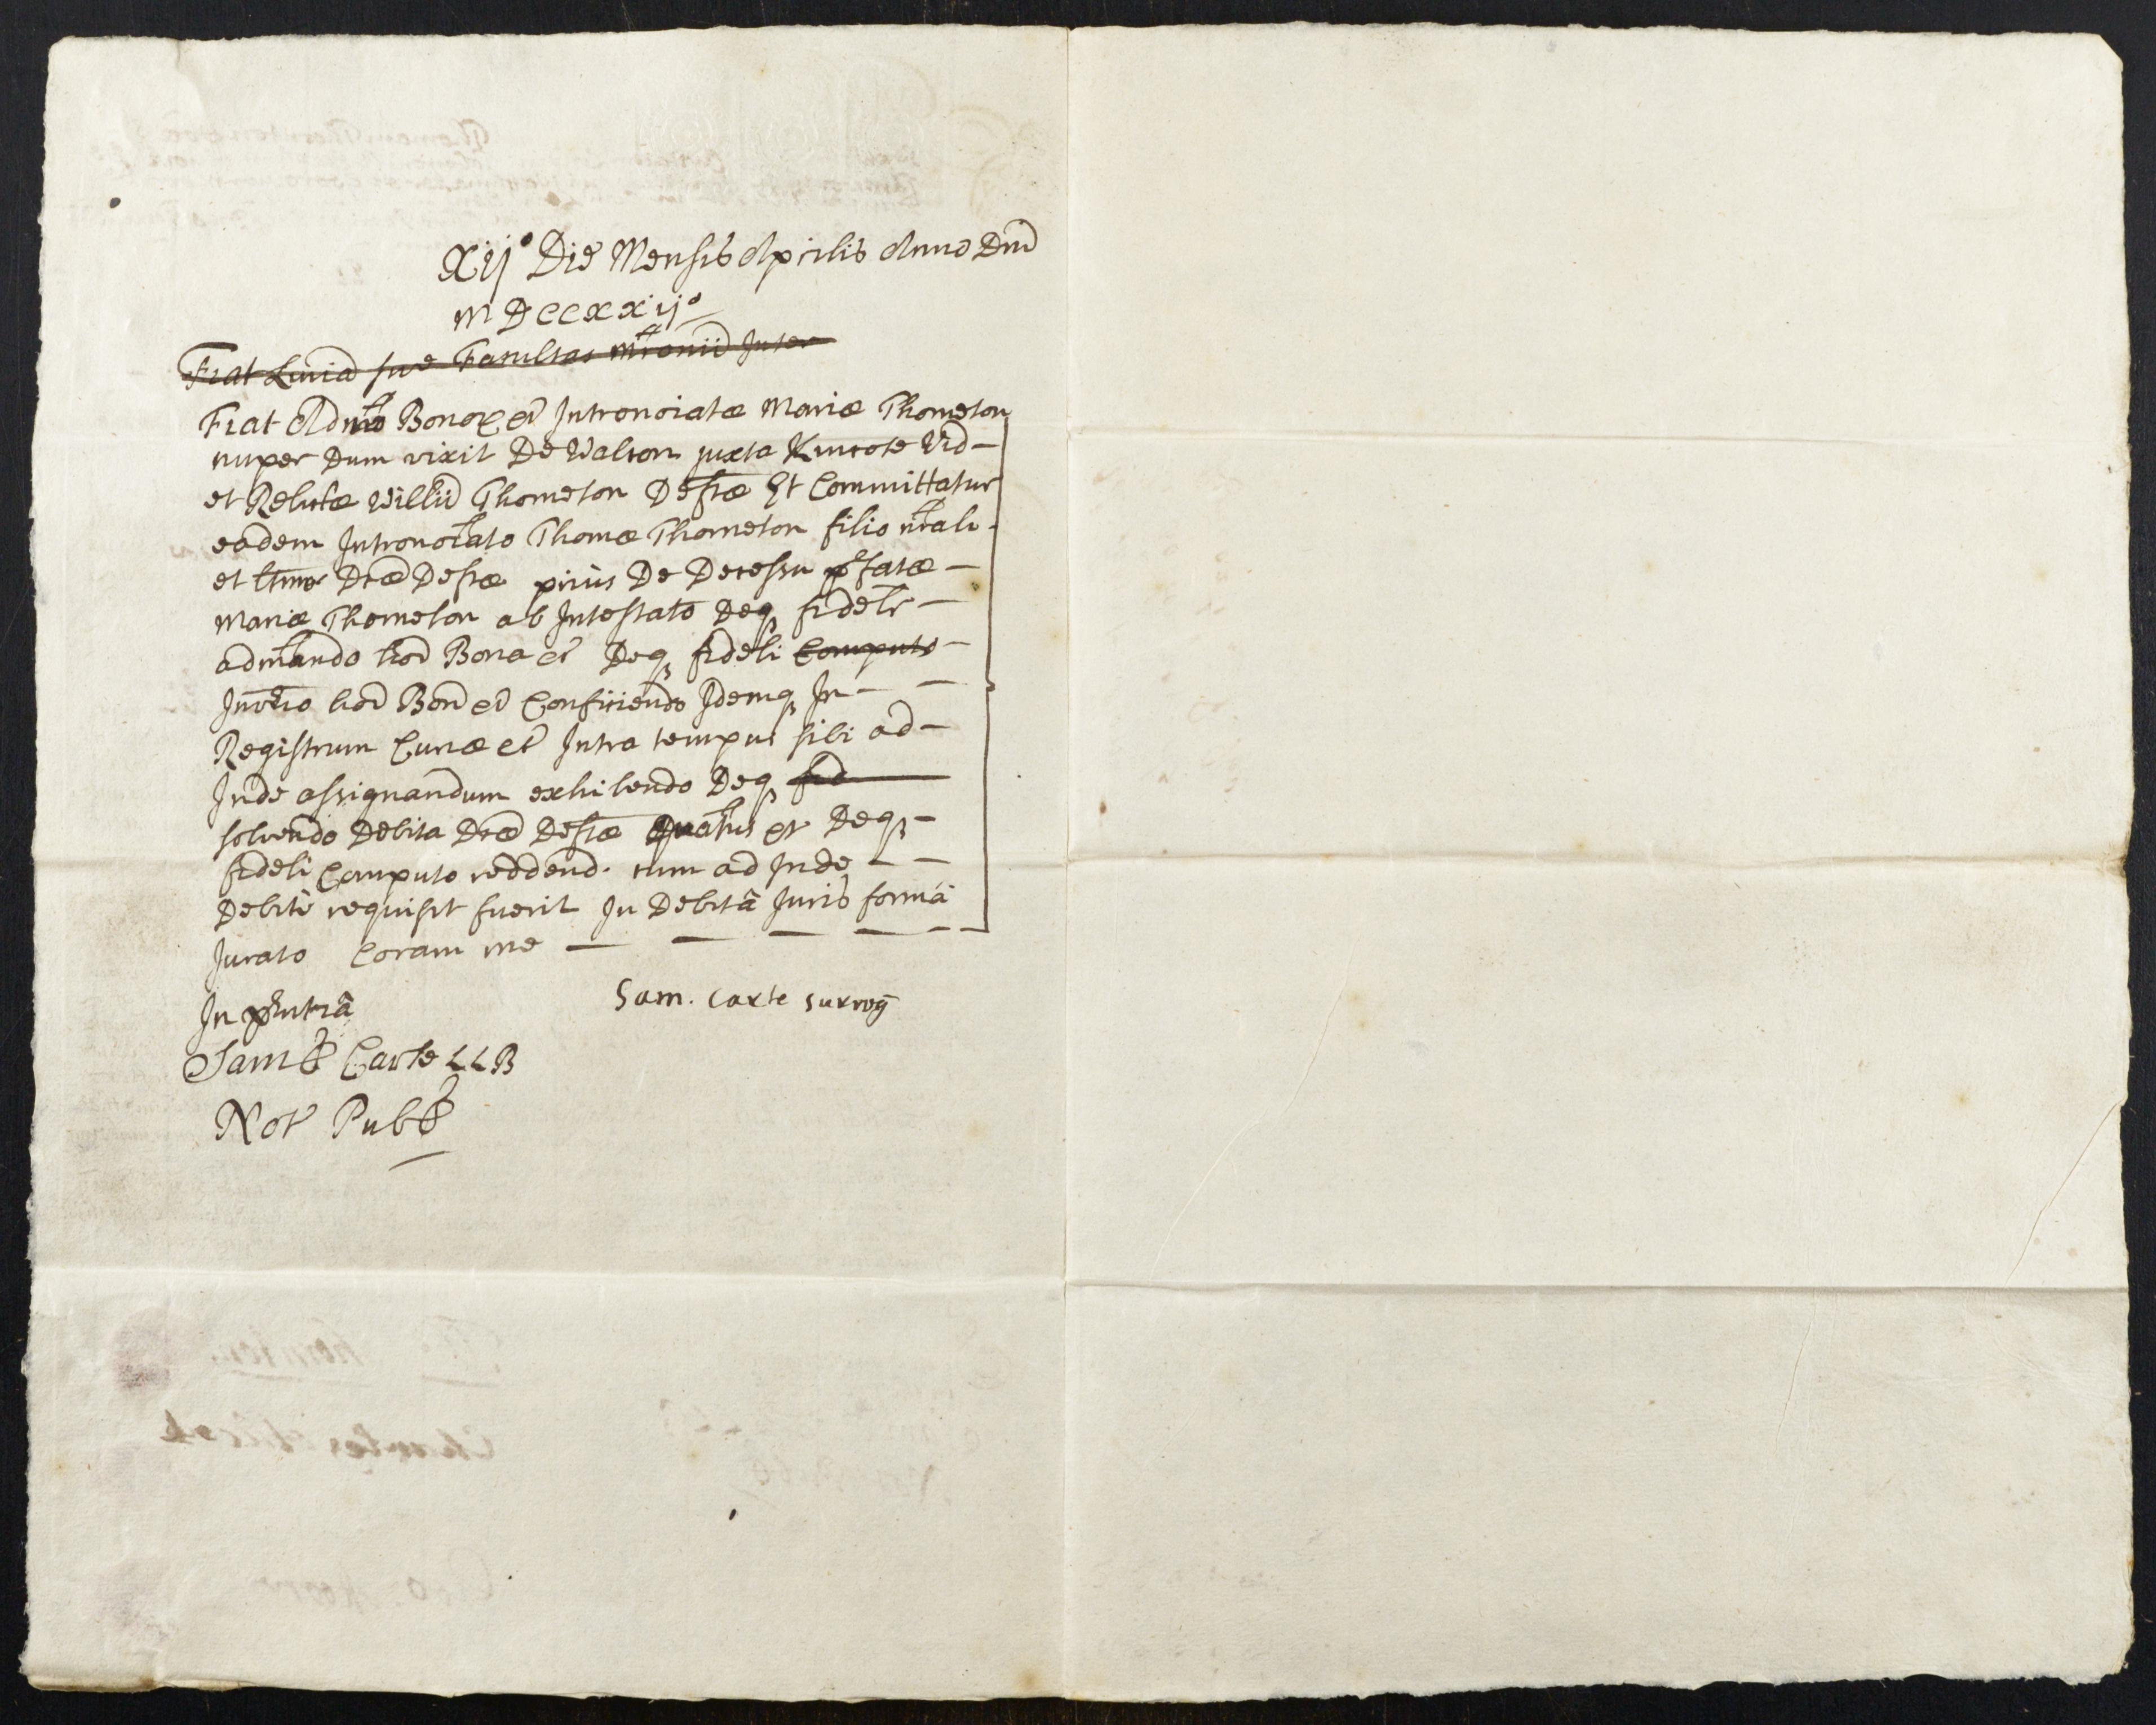 xij° Die Mensis Aprilis Anno Dnĩ
MDCCxxij°
Fiat Licñia sive Facultas mr̃onii Inter
Fiat Adm̃o Bonor̃ et̃ Intronoĩatæ Mariæ Thorneton
nuper Dum vixit De Walton juxta Kincote Vid
et Relictæ Willũ Thorneton Defctæ Et Committatur
eadem Intronoĩato Thomæ Thorneton filio ñrali
et ltimo Dc̃æ Defctæ prius De Decessu p̃fatæ
Mariæ Thorneton ab Intestato Deq fidelr
admtrando hõd Bona et̃ Deq fideli Computo
Invrio hõd Bon et̃ Conficiendo Idemq In
Registrum Curiæ et̃ Intra tempus sibi ad
Inde assignandum exhibendo Deq fid
solvendo Debita Dc̃æ Defctæ Quatus et Deq
fideli Computo reddend. cum ad Inde
Debite requisit fuerit In Debitâ Juris formâ
Jurato Coram me
Sam. Carte surrog
In p̃sntiâ
Saml Carte LLB
Not Publ